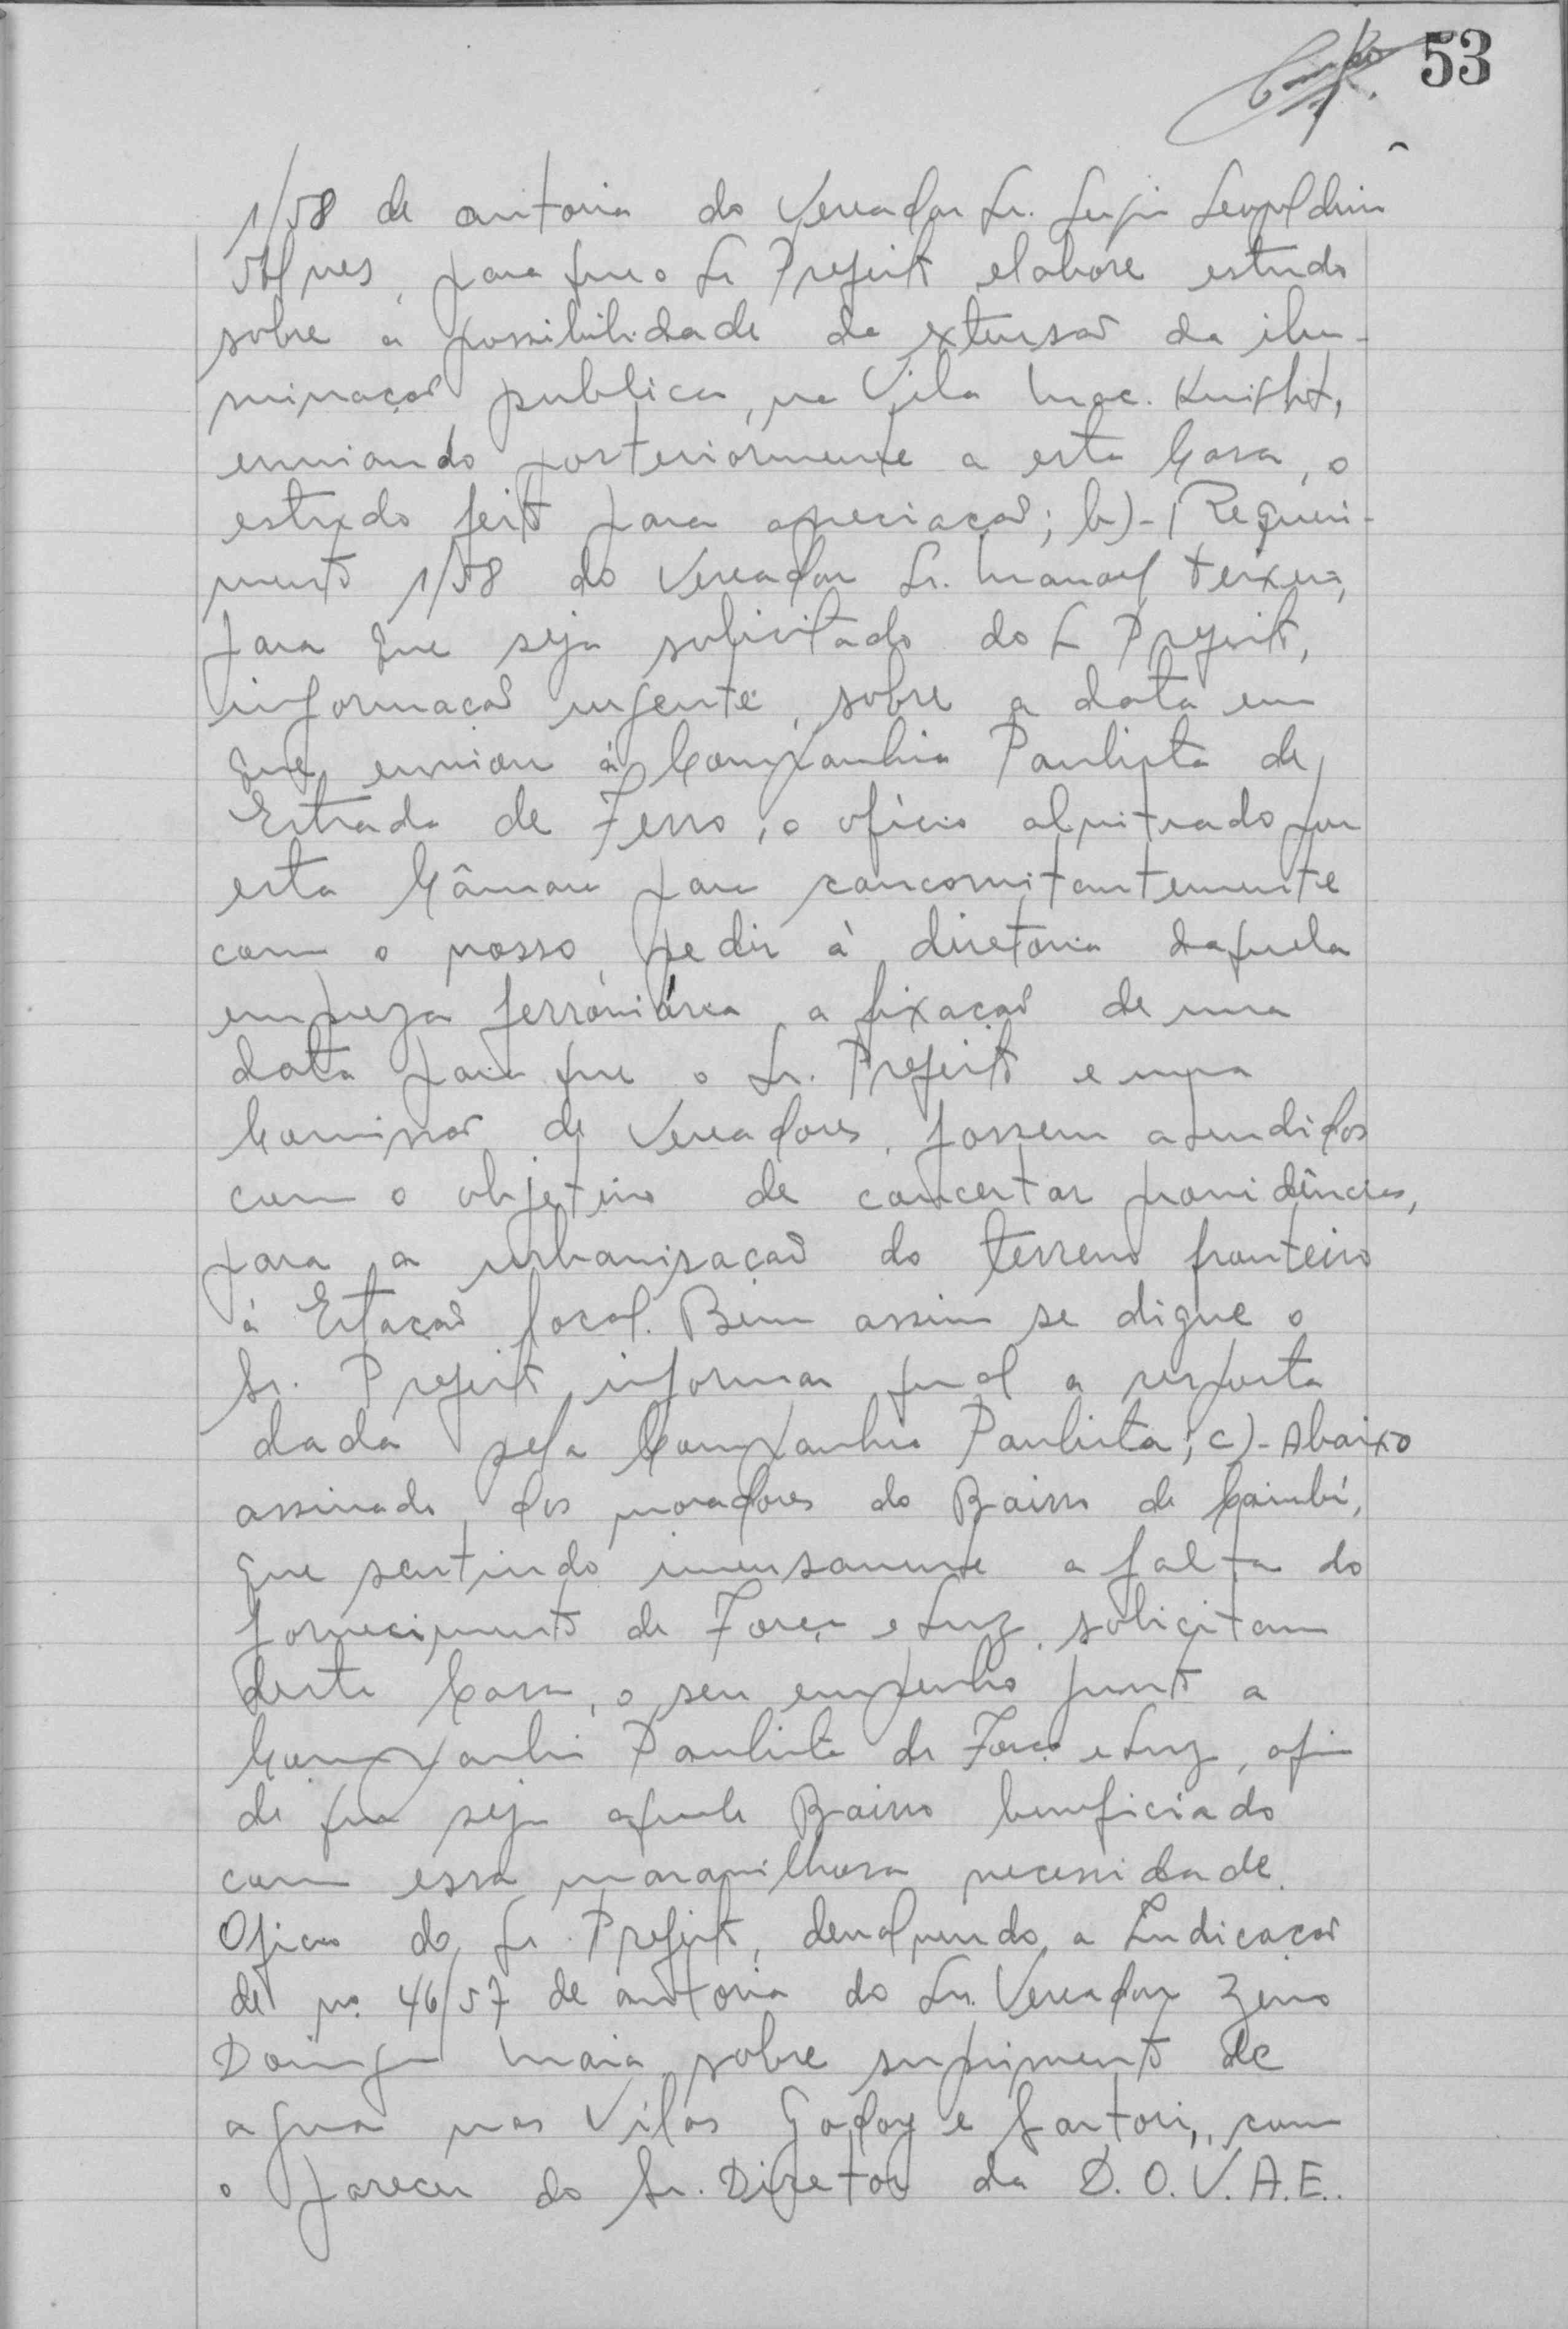 53
1/58 de autoria do Vereador Sr. Leopoldino
Alves, para que o Sr Prefeito elabore estudo
sobre a possibilidade da extensão da ilu-
minação publica, na Vila Mac. Knight,
enviando posteriormente a esta Casa, o
estudo feito para apreciação; b)- Requeri-
mento 1/58 do Vereador Sr. Manoel Teixeira,
para que seja solicitado do S Prefeito,
informação urgente, sobre a data em
que enviou à Companhia Paulista de
Estrada de Ferro, o ofício alvitrado por
esta Câmara para concomitantemente
com o nosso, pedir à diretoria daquela
empreza ferroviárea a fixação de uma
data para que o Sr. Prefeito e uma
Comissão de Vereadores, fossem atendidos
com o objetivo de concertar providências,
para a urbanisação do terreno fronteiro
à Estação local. Bem assim se digne o
Sr. Prefeito, informar qual a resposta
dada pela Companhia Paulista; c)- Abaixo
assinado dos moradores do Bairro de Caiubí,
que sentindo imensamente a falta do
fornecimento de Força e Luz, solicitam
desta Casa, o seu empenho junto a
Companhia Paulista de Força e Luz, afim
de que seja aquele Bairro beneficiado
com essa maravilhosa necessidade.
Oficio do Sr. Prefeito, devolvendo a Indicação
de no. 46/57 de autoria do Sr. Vereador Zeno
Maia, sobre suprimento de
agua nas Vilas Godoy e Sartori, com
o parecer do Sr. Diretor da D.O.V.A.E..